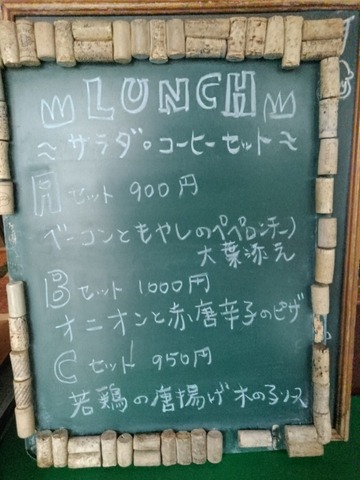 LUNCH
~サラダ・コーヒーセット~
Aセット 900円
ベーコンともやしのペペロンチーノ
大葉添え
Bセット 1000円
オニオンと赤唐辛子のピザ
Cセット 950円
若鶏の唐揚げ木の子ソース